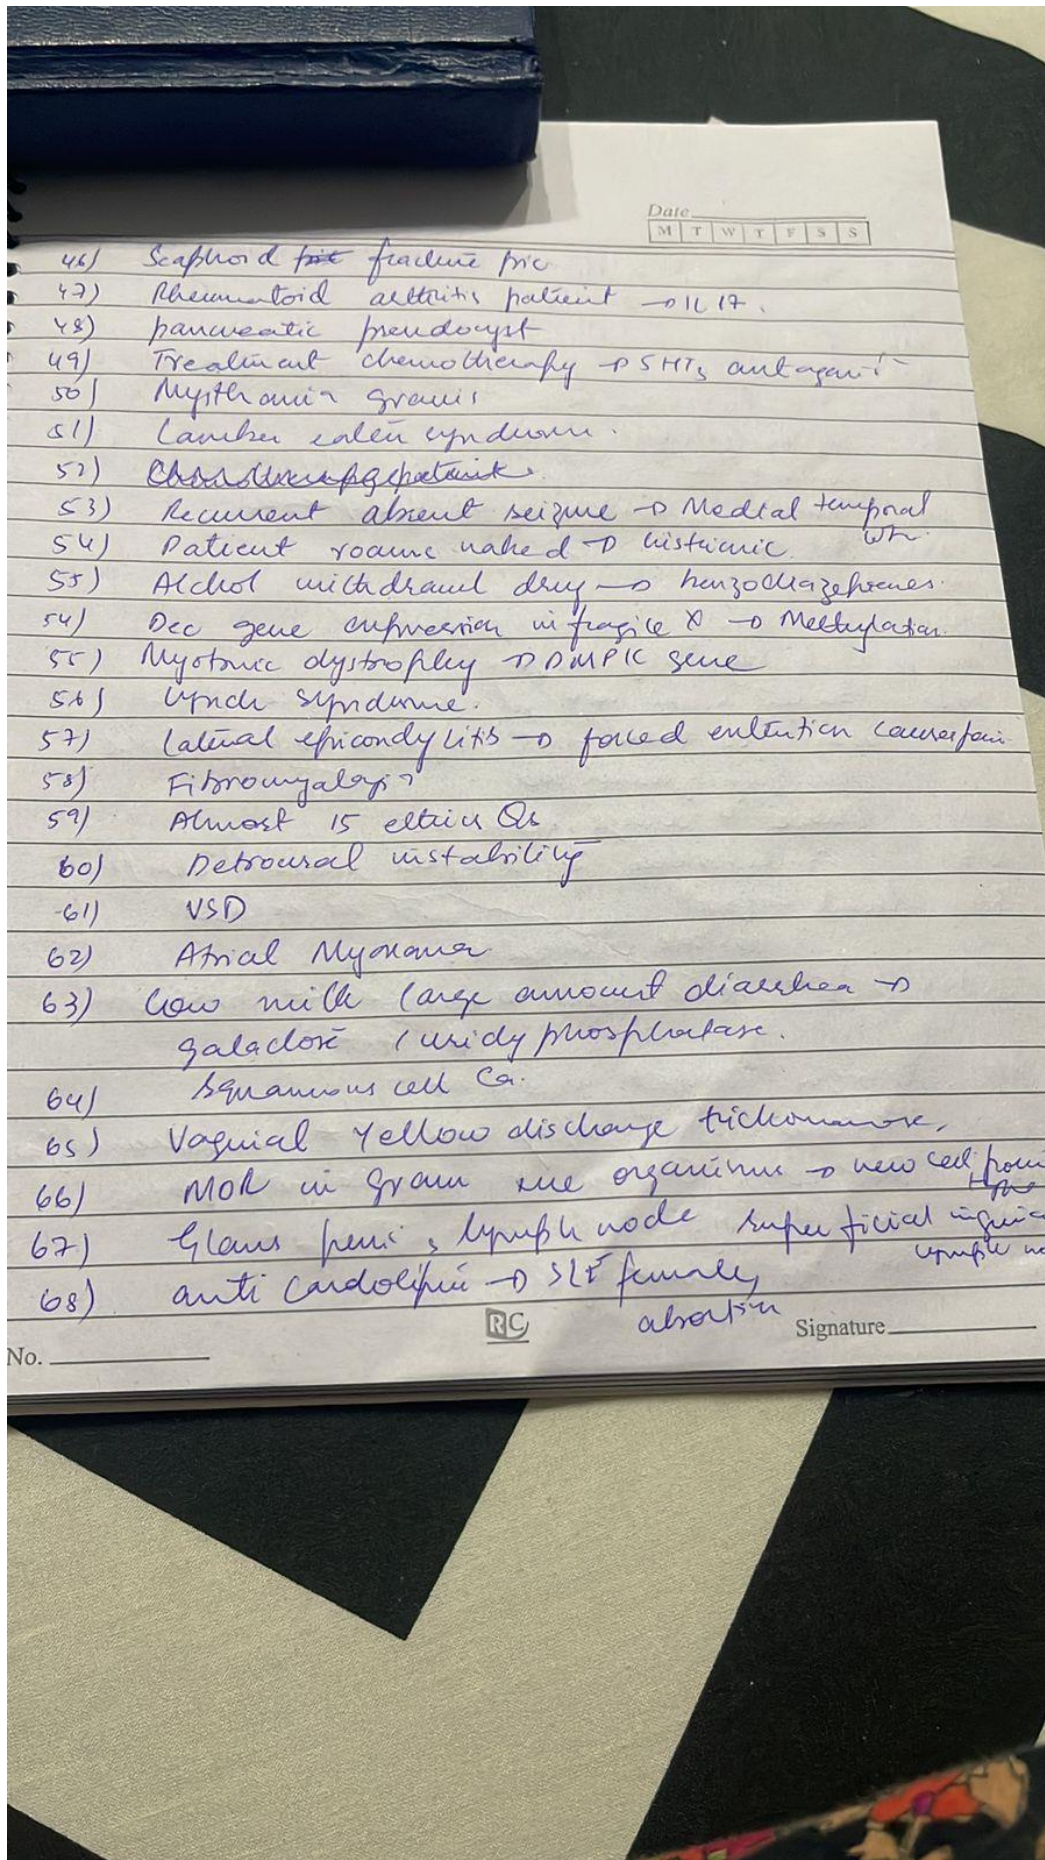 Date
M T W T F S S
46) Scaphoid fracture pic
47) Rheumatoid arthritis patient → IL 17.
48) pancreatic pseudocyst
49) Treatment chemotherapy → 5HT3 antagonist
50) Mysthania gravis
51) Lamber eaten syndrome.
52)
53) Recurrent absent seizure → Medial temporal
54) Patient roams naked → histrionic.
55) Alchol withdrawl drug → benzodiazepienes.
54) Dec gene expression in fragile X → Methylation.
55) Myotonic dystrophy → DMPK gene
56) lynch syndrome.
57) lateral epicondylitis → forced extention causes pain
58) Fibromyalagia
59) Almost 15 ethics Qs
60) Detrousal instability
61) VSD
62) Atrial Myxoma
63) Cow milk large amount diarrhea →
galactose 1 uridy phosphatase.
64) Squamous cell Ca.
65) Vaginal Yellow discharge trickomonose,
66) MOR in gram organisms → new cell
67) Glans penis lymph node superficial
lymph
68) anti cardolipin → SLE female,
abortion
RC
Signature
No.